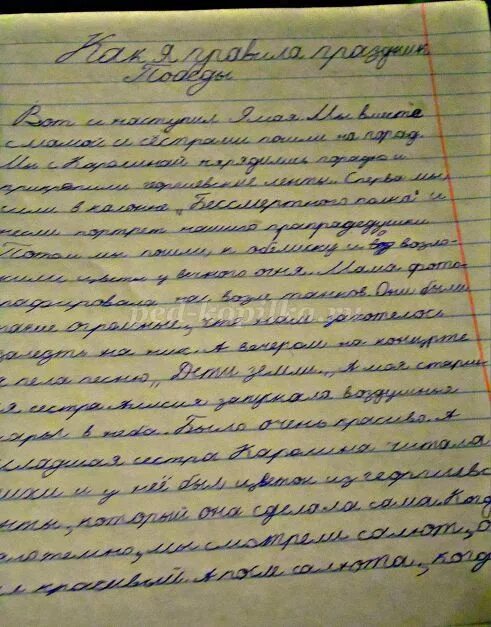 Как я правила праздник
Победы
Вот и наступил 9 мая. Мы вместе
с мамой и сёстрами пошли на парад.
Мы с Каролиной нарядились парадно и
прицепили георгиевские ленты. Сперва мы
или в колонне „Бессмертного полка" и
несли портрет нашего прапрадедушки
Потом мы пошли к обелиску и возло-
жили цветы у вечного огня. Мама фото-
рафировала нас возле танков. Они были
такие огромные, что нам захотелось
залезть на них. А вечером на концерте
я пела песню „Дети земли„. А моя старш
я сестра Алисия запускала воздушные
шары в небо. Было очень красиво. А
младшая сестра Каролина читала
тихи и у неё был цветок из георгиевс
нты, который она сделала сама. Когд
ало темно, мы смотрели салют, о
л красивый. А после салюта, когд
ped-kopilka.ru